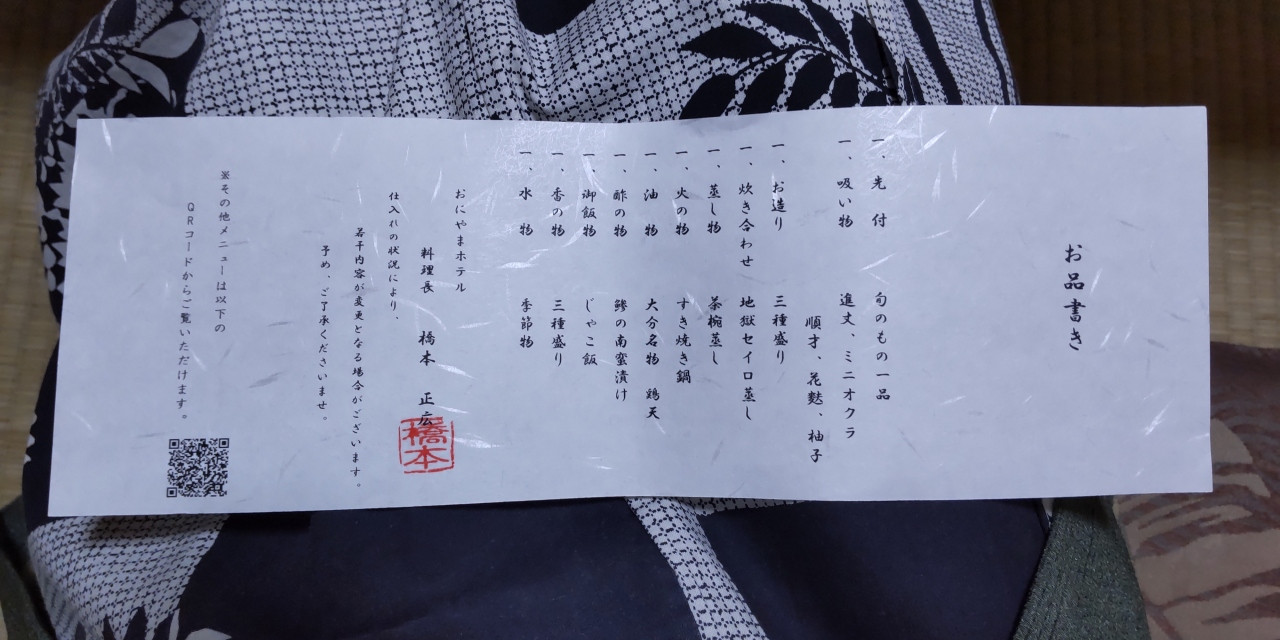 お品書き
一、先付 旬のもの一品
一、吸い物 進丈、ミニオクラ
順才、花麩、柚子
一、お造り 三種盛り
一、炊き合わせ 地獄セイロ蒸し
一、蒸し物 茶椀蒸し
一、火の物 すき焼き鍋
一、油物 大分名物 鶏天
一、酢の物 鯵の南蛮漬け
一、御飯物 じゃこ飯
一、香の物 三種盛り
一、水物 季節物
おにやまホテル
料理長 橋本 正広
橋本
仕入れの状況により、
若干内容が変更となる場合がございます。
予め、ご了承くださいませ。
※その他メニューは以下の
QRコードからご覧いただけます。